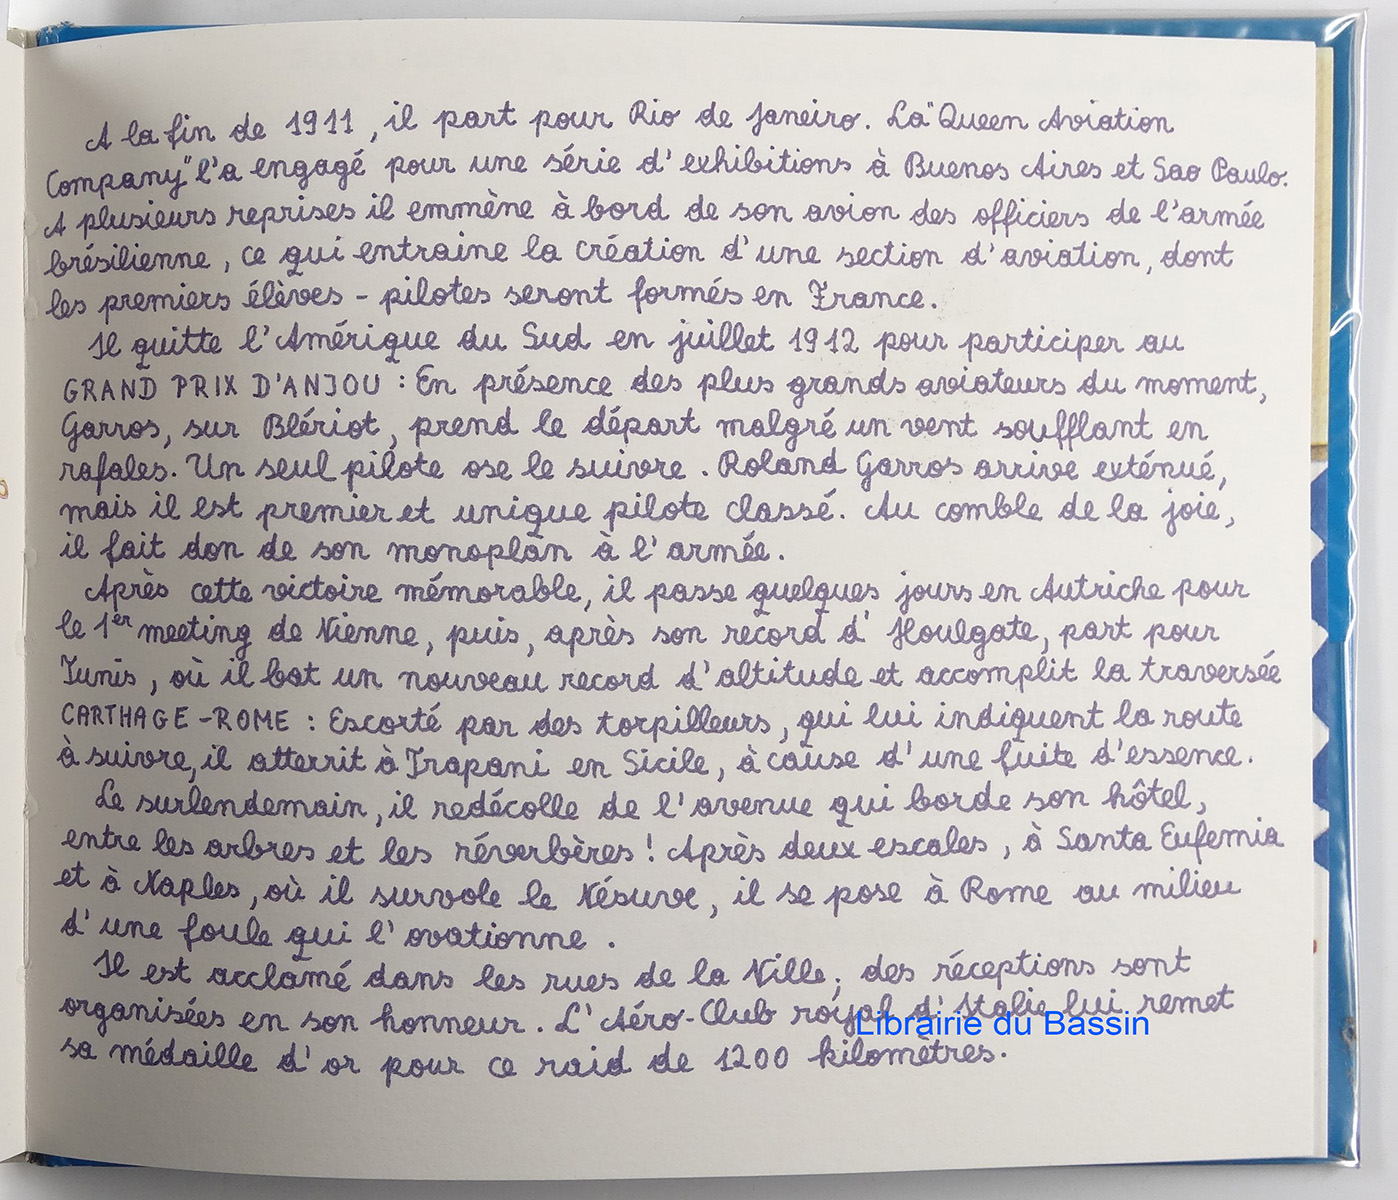 A la fin de 1911, il part pour Rio de Janeiro. La "Queen Aviation
Company" l'a engagé pour une série d'exhibitions à Buenos Aires et Sao Paulo.
A plusieurs reprises il emmène à bord de son avion des officiers de l'armée
brésilienne, ce qui entraine la création d'une section d'aviation, dont
les premiers élèves - pilotes seront formés en France.
Il quitte l'Amérique du Sud en juillet 1912 pour participer au
GRAND PRIX D'ANJOU : En présence des plus grands aviateurs du moment,
Garros, sur Blériot, prend le départ malgré un vent soufflant en
rafales. Un seul pilote ose le suivre. Roland Garros arrive exténué,
mais il est premier et unique pilote classé. Au comble de la joie,
il fait don de son monoplan à l'armée.
Après cette victoire mémorable, il passe quelques jours en Autriche pour
le 1er meeting de Vienne, puis, après son record d' Houlgate, part pour
Tunis, où il bat un nouveau record d'altitude et accomplit la traversée
CARTHAGE - ROME : Escorté par des torpilleurs, qui lui indiquent la route
à suivre, il atterrit à Trapani en Sicile, à cause d'une fuite d'essence.
Le surlendemain, il redécolle de l'avenue qui borde son hôtel,
entre les arbres et les réverbères ! Après deux escales, à Santa Eufemia
et à Naples, où il survole le Vésuve, il se pose à Rome au milieu
d'une foule qui l'ovationne.
Il est acclamé dans les rues de la Ville; des réceptions sont
organisées en son honneur. L'Aéro-Club royal d'Italie lui remet
sa médaille d'or pour ce raid de 1200 kilomètres.
Librairie du Bassin